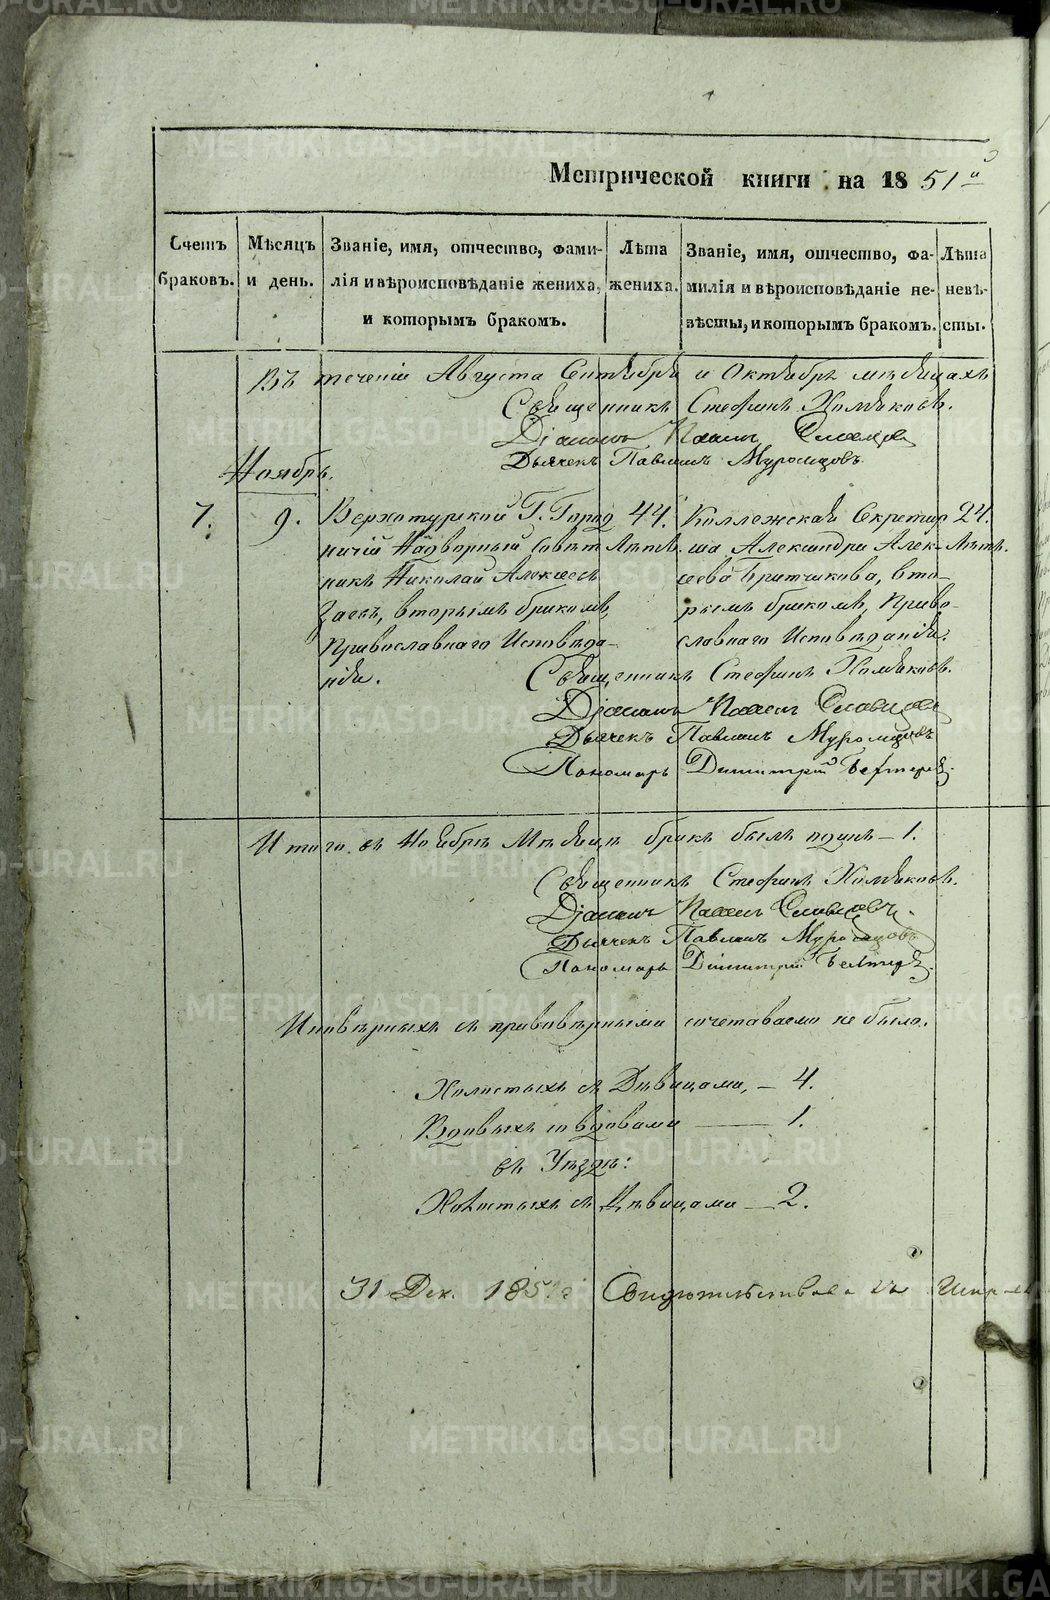 Метрической книги на 1851й
Счетъ браковъ.
Мѣсяцъ и день.
Званіе, имя, отчество, фами-
лія и вѣроисповѣданіе жениха,
и которымъ бракомъ.
Лѣта жениха.
Званіе, имя, отчество, фа-
милія и вѣроисповѣданіе не-
вѣсты, и которымъ бракомъ.
Лѣта невѣ-
сты.
Въ теченіи Августа Сентября и Октября мѣсяцахъ
Священникъ Стефанъ Хомяковъ.
Діаконъ Павелъ Словцовъ
Дьячекъ Павелъ Муромцовъ.
Ноябрь.
7. 9.
Верхотурской Г. Город
ничій Надворный Совѣт
никъ Николай Алексѣевъ
вторымъ бракомъ,
Православнаго Исповѣда-
нія.
44.
Лѣтъ.
Коллежская Секретар
ша Александра Алек-
сѣева вто-
рымъ бракомъ, Право-
славнаго Исповѣданія.
24.
Лѣтъ.
Священникъ Стефанъ Хомяковъ.
Діаконъ Павелъ Словцовъ
Дьячекъ Павелъ Муромцовъ
Пономарь Димитрій
Итого въ Ноябрѣ Мѣсяцѣ бракъ былъ одинъ – 1.
Священникъ Стефанъ Хомяковъ.
Діаконъ Павелъ Словцовъ.
Дьячекъ Павелъ Муромцовъ
Пономарь Димитрій
Иновѣрныхъ съ правовѣрными сочетаваемо не было.
Холостыхъ съ Дѣвицами, – 4.
Вдовыхъ со вдовами – 1.
въ Уѣздѣ:
Холостыхъ съ Дѣвицами – 2.
31 Дек. 1851 г. Свидѣтельствовалъ
METRIKI.GASO-URAL.RU